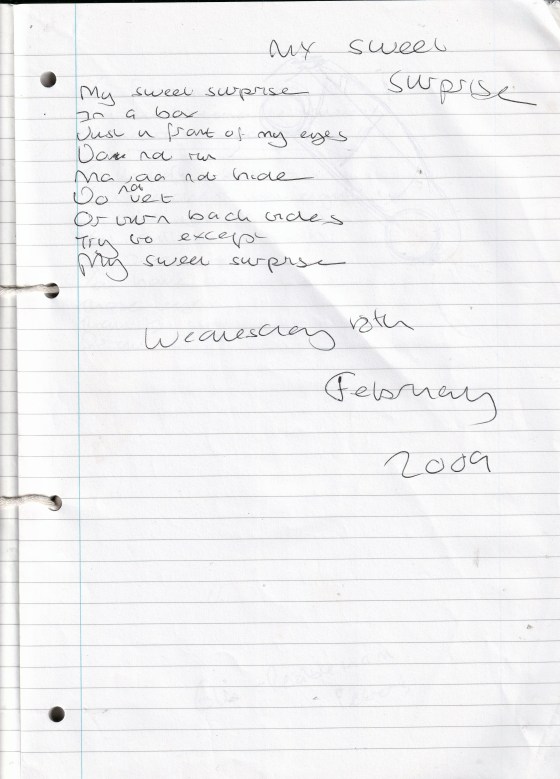 My sweet
surprise
My sweet surprise
In a box
Just in front of my eyes
Do not run
do not hide
Do not
Or turn back
Try to except
My sweet surprise
Wednesday 18th
February
2009